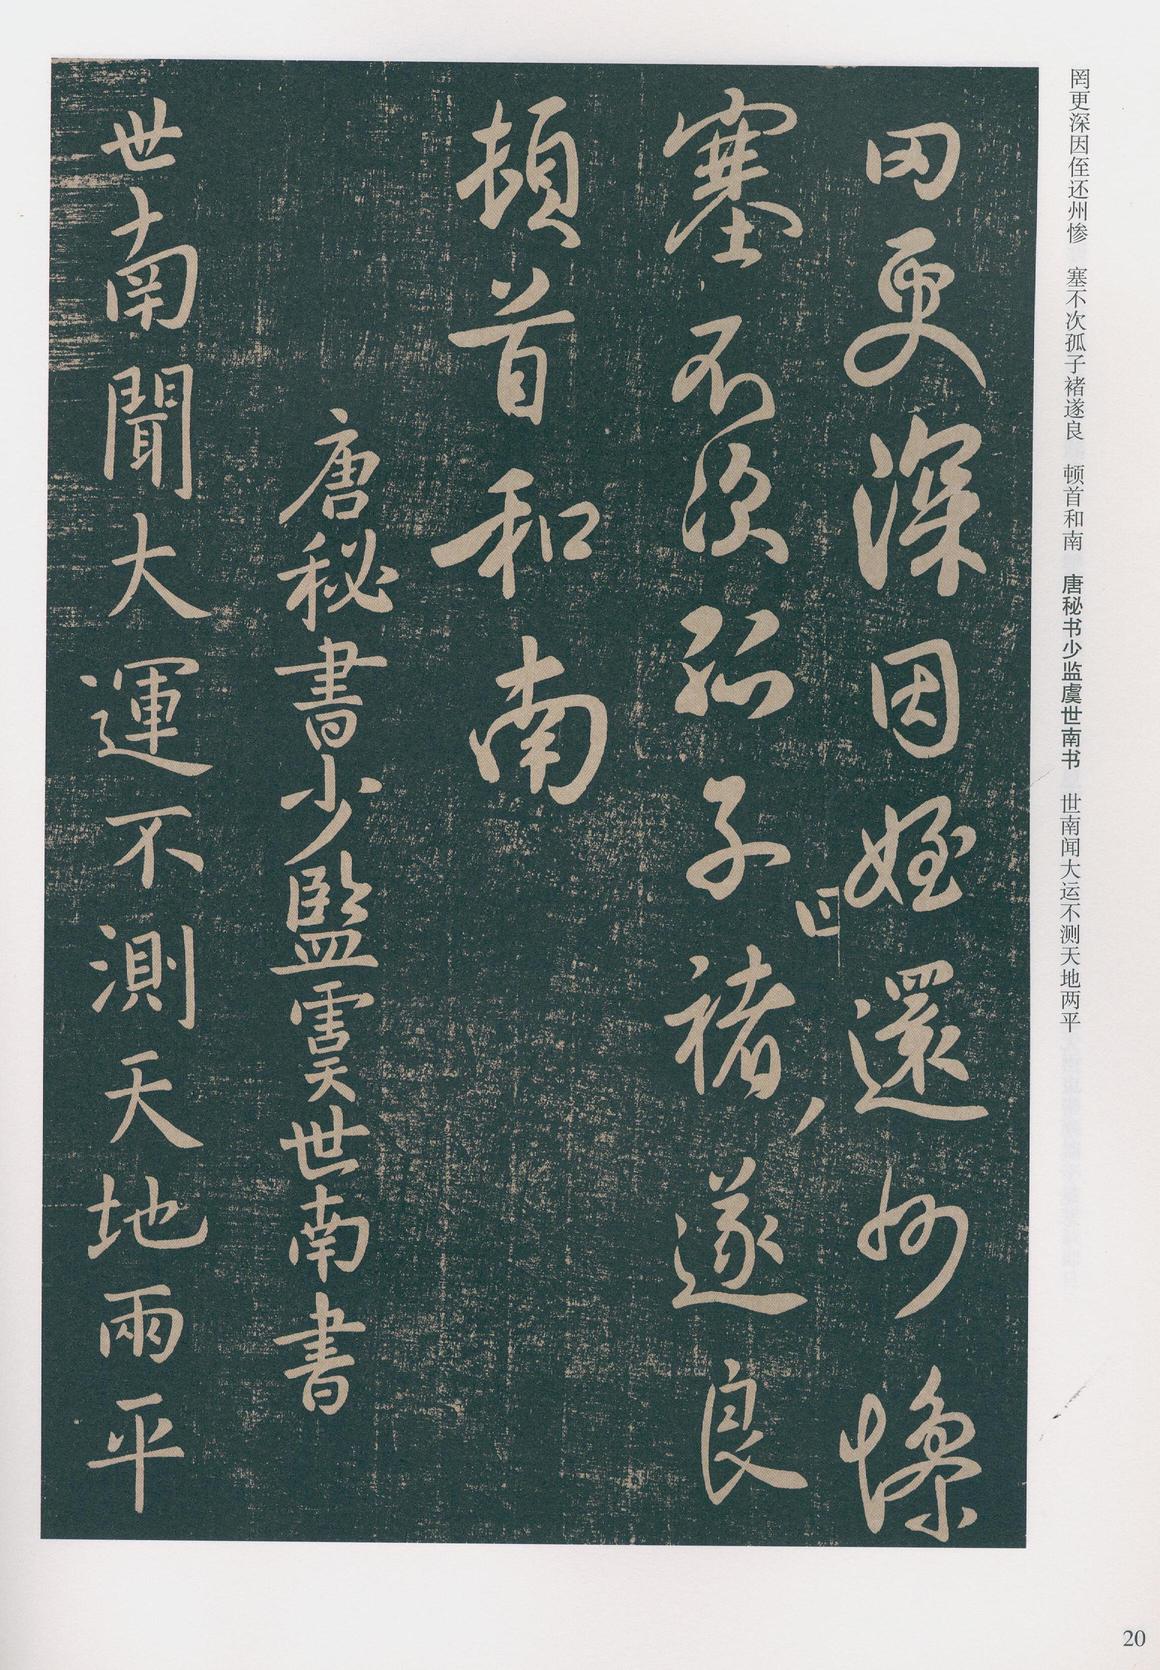 罔更深因侄还州惨 塞不次孤子褚遂良 顿首和南 唐秘书少监虞世南书 世南闻大运不测天地两平
罔更深因姪還州惨
塞不次孤子褚遂良
頓首和南
唐秘書少監虞世南書
世南聞大運不測天地兩平
20